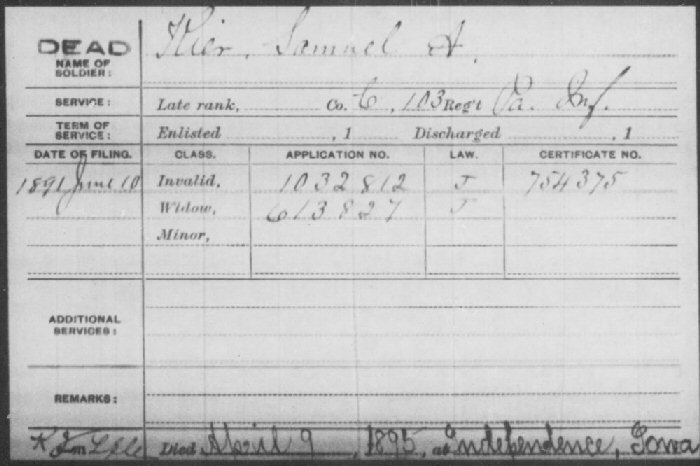 DEAD Kier, Samuel A.
NAME OF
SOLDIER:
SERVICE: Late rank, Co. C, 103 Reg't Pa. Inf.
TERM OF
SERVICE: Enlisted , 1 Discharged , 1
DATE OF FILING. CLASS. APPLICATION NO. LAW. CERTIFICATE NO.
1891 June 10 Invalid, 1032812 J 754375
Widow, 613827 J
Minor,
ADDITIONAL
SERVICES:
REMARKS:
Died April 9, 1895, at Independence, Iowa